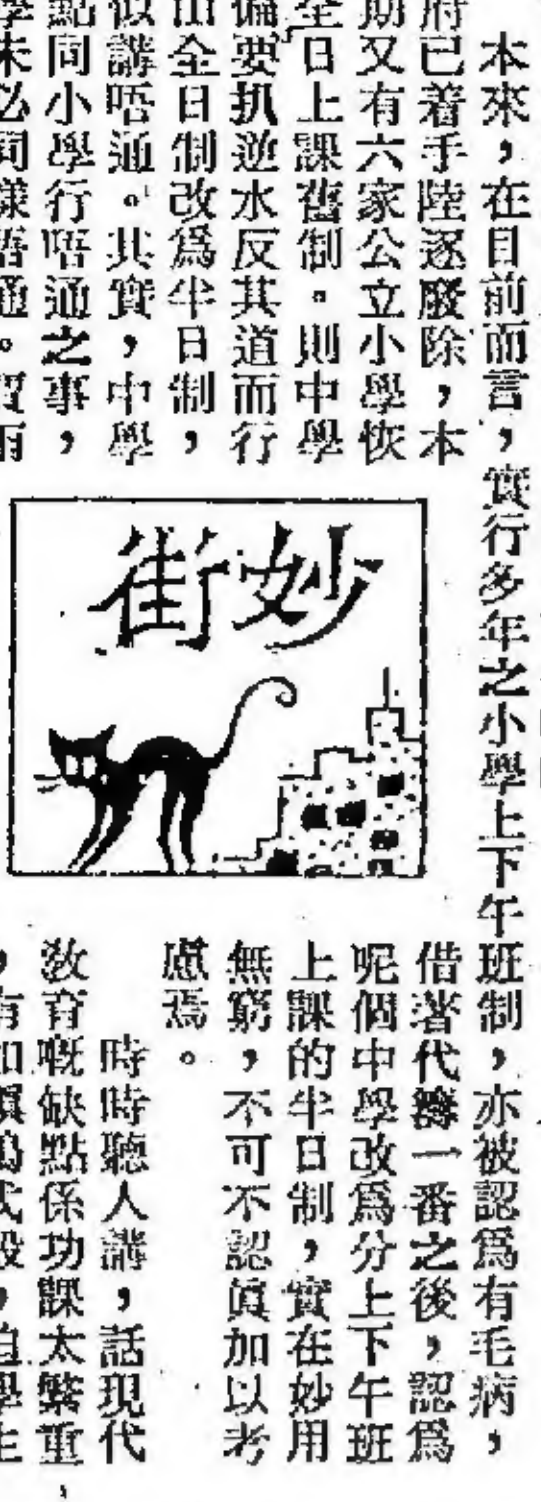 本來，在目前而言，實行多年之小學上下午班制，亦被認爲有毛病，
府已着手陸逐廢除，本
期又有六家公立小學恢
全日上課舊制。則中學
偏要扒逆水反其道而行
由全日制改爲半日制，
似講唔通。其實，中學
點同小學行唔通之事，
學未必同樣唔通。賈雨
妙街
借著代籌一番之後，認爲
呢個中學改爲分上下午班
上課的半日制，實在妙用
無窮，不可不認眞加以考
慮焉。
時時聽人講，話現代
敎育嘅缺點係功課太繁重，
，有如填鴨式般，迫學生